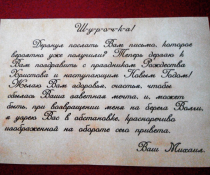 Шурочка!
Дерзнул послать Вам письмо, которое
вероятно уже получили? Теперь дерзаю к
Вам поздравить с праздником Рождества
Христова и наступающим Новым Годом!
Желаю Вам здоровья, счастья, чтобы
сбылась Ваша заветная мечта, и, может
быть, при возвращении меня на берега Волги,
я узрею Вас в обстановке, красноречиво
изображенной на обороте сего привета.
Ваш Михаил.